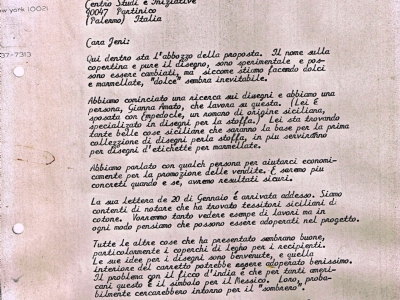 Centro Studi e Iniziative
90047 Partinico
(Palermo) Italia
new york 10021
37-7313
Cara Jeni:
Qui dentro sta l'abbozzo della proposta. Il nome sulla
copertina e pure il disegno, sono sperimentale e pos-
sono essere cambiati, ma siccome stiamo facendo dolci
e marmellate, "dolce" sembra inevitabile.
Abbiamo cominciato una ricerca sui disegni e abbiamo una
persona, Gianna Amato, che lavora su questa. (Lei E
sposata con Empedocle, un romano di origine siciliana,
specializato in disegni per la stoffa.) Lei sta trovando
tante belle cose siciliane che saranno la base per la prima
collezione di disegni perla stoffa, in piu servirànno
per disegni d'etichette per marmellate.
Abbiamo parlato con qualch persona per aiutarci economi-
camente per la promozione delle vendite. E saremo piu
concreti quando e se, avremo resultati sicuri.
La sua lettera de 20 di Gennaio é arrivata addesso. Siamo
contenti di notare che ha trovato tessitori siciliani di
cotone. Vorremmo tanto vedere esempe di lavori ma in
ogni modo pensiamo che possono essere adoperati nel progetto.
Tutte le altre cose che ha presentato sembrano buone,
particolarmente i coperchi di legho per i recipienti.
Le sue idee per i disegni sono benvenute, e quella
interiore del carretto potrebbe essere adoperato benissimo.
Il problema con il fico d'india é che per tanti ameri-
cani questo é il simbolo per il Messico. Loro, proba-
bilmente cercarebbero intorno per il "sombrero".